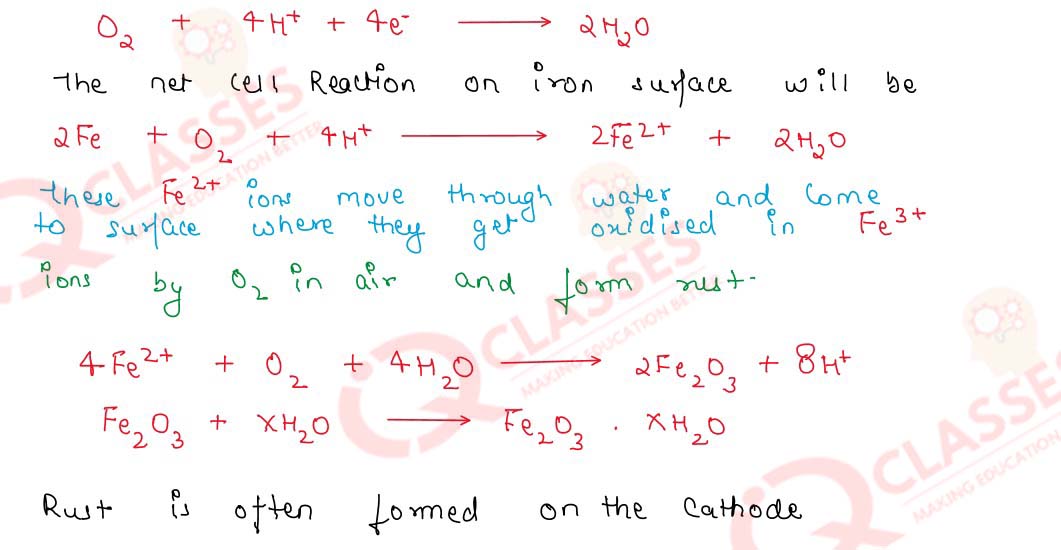 O₂ + 4H⁺ + 4e⁻ ⟶ 2H₂O
The net cell Reaction on iron surface will be
2Fe + O₂ + 4H⁺ ⟶ 2Fe²⁺ + 2H₂O
These Fe²⁺ ions move through water and come
to surface where they get oxidised in Fe³⁺
ions by O₂ in air and form rust-
4Fe²⁺ + O₂ + 4H₂O ⟶ 2Fe₂O₃ + 8H⁺
Fe₂O₃ + xH₂O ⟶ Fe₂O₃ . xH₂O
Rust is often formed on the cathode
CLASSES
MAKING EDUCATION BETTER
CLASSES
MAKING EDUCATION BETTER
CLASSES
MAKING EDUCATION